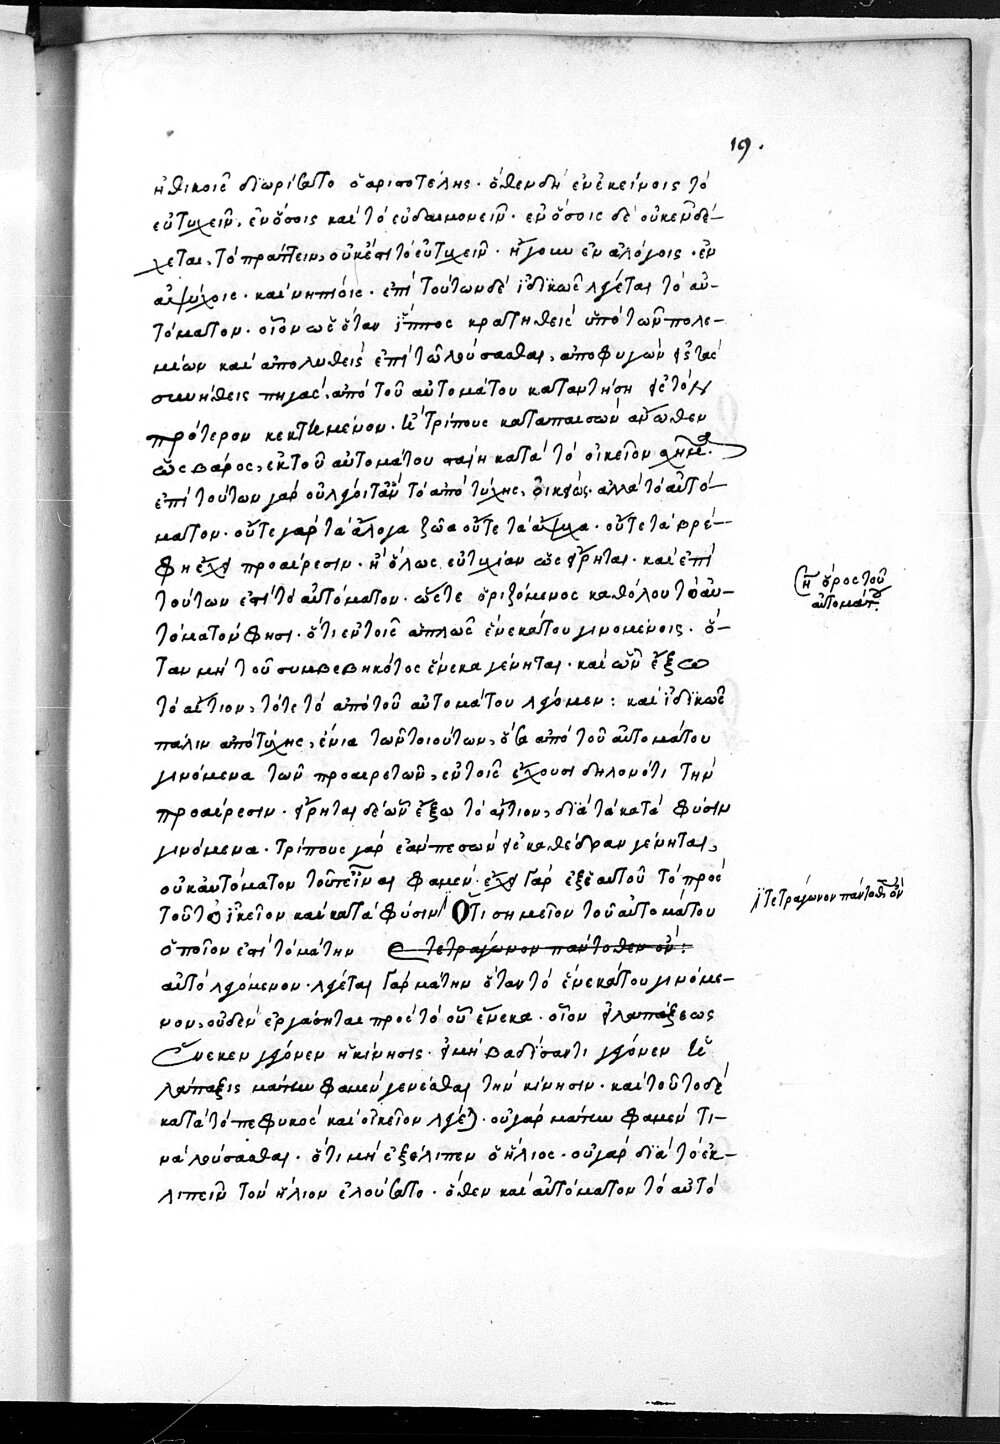 19.
ἠθικοῖς διωρίσατο ὁ ἀριστοτέλης. ὅθεν δὴ ἐν ἐκείνοις τὸ
εὐτυχεῖν, ἐν ὅσοις καὶ τὸ εὐδαιμονεῖν. ἐν ὅσοις δὲ οὐκ ἐνδέ-
χεται, τὸ πράττειν, οὐκ ἔστι τὸ εὐτυχεῖν. ἤγουν ἐν ἀλόγοις. ἐν
ἀψύχοις. καὶ νηπίοις. ἐπὶ τούτων δὲ ἰδικῶς λέγεται τὸ αὐ-
τόματον. οἷον ὡς ὅταν ἵππος κρατηθεὶς ὑπὸ τῶν πολε-
μίων καὶ ἀπολυθεὶς ἐπὶ τῷ λούσασθαι, ἀποφυγὼν εἰς τὰς
συνήθεις πηγάς, ἀπὸ τοῦ αὐτομάτου καταντήσῃ εἰς τὸν
πρότερον κεκτημένον. καὶ τρίπους καταπεσὼν ἄνωθεν
ὡς βάρος, ἐκ τοῦ αὐτομάτου σταίη κατὰ τὸ οἰκεῖον σχῆμα.
ἐπὶ τούτων γὰρ οὐ λέγοιτ' ἂν τὸ ἀπὸ τύχης, εἰκότως. ἀλλὰ τὸ αὐτό-
ματον. οὔτε γὰρ τὰ ἄλογα ζῶα οὔτε τὰ ἄψυχα. οὔτε τὰ βρέ-
φη ἔχει προαίρεσιν. ἢ ὅλως εὐτυχίαν ὡς εἴρηται. καὶ ἐπὶ
τούτων ἐστὶ τὸ αὐτόματον. ὥστε ὁριζόμενος καθόλου τὸ αὐ-
τόματόν φησι. ὅτι ἐν τοῖς ἁπλῶς ἕνεκά του γινομένοις. ὅ-
ταν μὴ τοῦ συμβεβηκότος ἕνεκα γένηται. καὶ ὧν ἔξω
τὸ αἴτιον, τότε τὸ ἀπὸ τοῦ αὐτομάτου λέγομεν: καὶ ἰδικῶς
πάλιν ἀπὸ τύχης, ἔνια τῶν τοιούτων, ὅσα ἀπὸ τοῦ αὐτομάτου
γινόμενα τῶν προαιρετῶν, ἐν τοῖς ἔχουσι δηλονότι τὴν
προαίρεσιν. εἴρηται δὲ ὧν ἔξω τὸ αἴτιον, διὰ τὰ κατὰ φύσιν
γινόμενα. τρίπους γὰρ ἐὰν πεσὼν εἰς καθέδραν γένηται,
οὐκ αὐτόματον τοῦτ' εἶναι φαμέν. ἔχει γὰρ ἐξ ἑαυτοῦ τὸ πρὸς
τοῦτο οἰκεῖον καὶ κατὰ φύσιν Ὅτι σημεῖον τοῦ αὐτομάτου
ὁποῖον ἐστὶ τὸ μάτην τετράγωνον πάντοθεν ὄν:
αὐτὸ λεγόμενον. λέγεται γὰρ μάτην ὅταν τὸ ἕνεκά του γινόμε-
νον, οὐδὲν ἐργάσηται πρὸς τὸ οὗ ἕνεκα. οἷον εἰ λαπάξεως
ἕνεκεν γέγονεν ἡ κίνησις. εἰ μὴ βαδίσαντι γέγονεν καὶ
λάπαξις μάτην φαμὲν γενέσθαι τὴν κίνησιν. καὶ τοῦτο δὲ
κατὰ τὸ πεφυκὸς καὶ οἰκεῖον λέγεται. οὐ γὰρ μάτην φαμέν τι-
να λούσασθαι. ὅτι μὴ ἐξέλιπεν ὁ ἥλιος. οὐ γὰρ διὰ τὸ ἐκ-
λιπεῖν τὸν ἥλιον ἐλούσατο. ὅθεν καὶ αὐτόματον τὸ αὐτὸ
ὅρος τοῦ
αὐτομάτου
τετράγωνον πάντοθεν ὄν